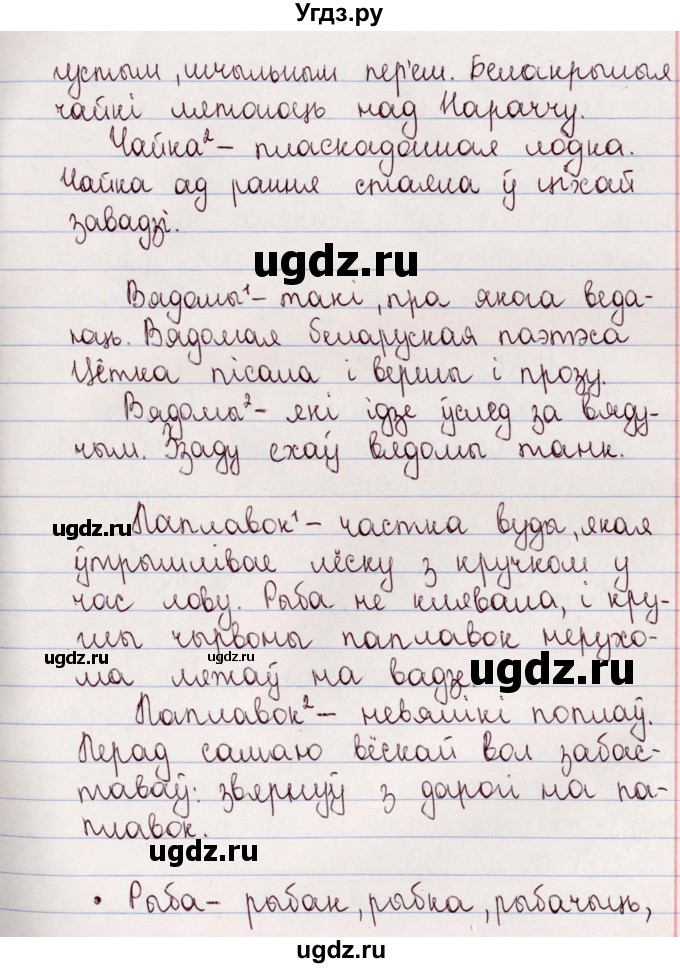 Угдз.ру
густым, шчыльным пер'ем. Белакрылыя
чайкі лятаюць над Нараччу.
Чайка² – пласкадонная лодка.
Чайка ад рання стаяла ў ціхай
завадзі.
ugdz.ru
Вядомы¹ – такі, пра якога веда-
юць. Вядомая беларуская паэтэса
Цётка пісала і вершы і прозу.
Вядомы² – які ідзе ўслед за вяду-
чым. Ззаду ехаў вядомы танк.
Паплавок¹ – частка вуды, якая
ugdz.ru
ўтрымлівае лёску з кручком у
час лову. Рыба не клявала, і кру-
глы чырвоны паплавок нерухо-
ugdz.ru
ugdz.ru
ма ляжаў на вадзе
ugdz.ru
Паплавок² – невялікі поплаў.
Перад самаю вёскай вол забас-
таваў: звярнуў з дарогі на па-
плавок.
ugdz.ru
• Рыба – рыбак, рыбка, рыбачыць,
ugdz.ru